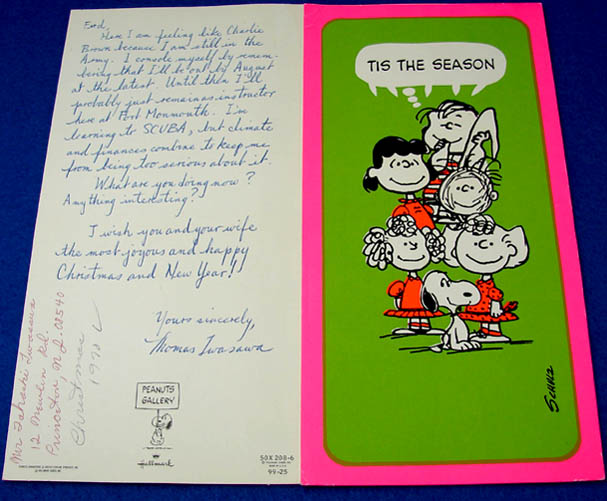 Ford,
Here I am feeling like Charlie
Brown because I am still in the
Army. I console myself by remem-
bering that I'll be out by August
at the latest. Until then I'll
probably just remain as instructor
here at Fort Monmouth. I'm
learning to SCUBA, but climate
and finances combine to keep me
from being too serious about it.
What are you doing now?
Anything interesting?
I wish you and your wife
the most joyous and happy
Christmas and New Year!
Yours sincerely,
Thomas Iwasawa
Mr Takashi Iwasawa
12 Newlin Rd.
Princeton, N.J. 08540
Christmas
1970
PEANUTS
GALLERY
Hallmark
50X 208-6
99-25
TIS THE SEASON
SCHULZ